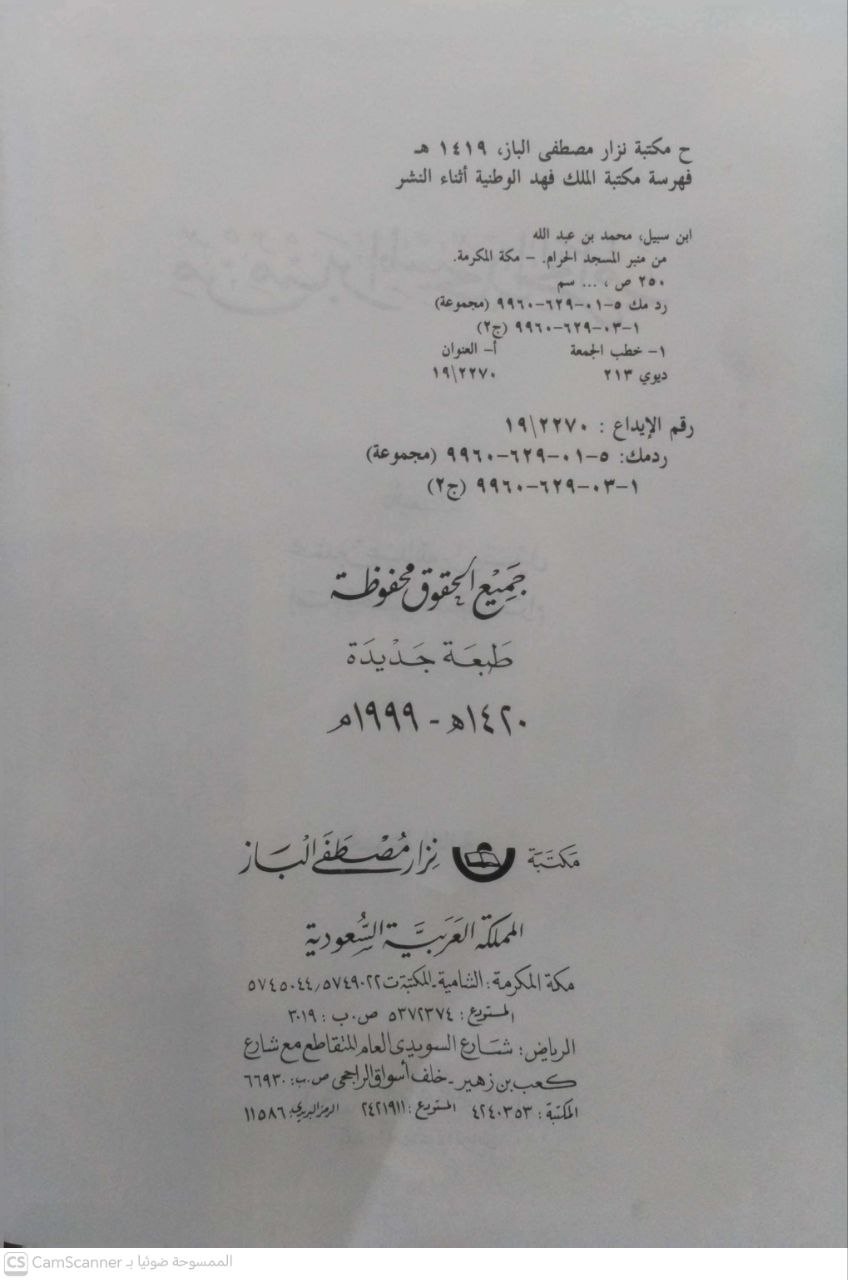 ح مكتبة نزار مصطفى الباز، ١٤١٩ هـ
فهرسة مكتبة الملك فهد الوطنية أثناء النشر
ابن سبيل، محمد بن عبد الله
من منبر المسجد الحرام. - مكة المكرمة.
٢٥٠ ص ، ... سم
رد مك ٥-٠١-٦٢٩-٩٩٦٠ (مجموعة)
١-٠٣-٦٢٩-٩٩٦٠ (ج٢)
١- خطب الجمعة أ- العنوان
ديوي ٢١٣ ١٩\٢٢٧٠
رقم الإيداع : ١٩\٢٢٧٠
ردمك: ٥-٠١-٦٢٩-٩٩٦٠ (مجموعة)
١-٠٣-٦٢٩-٩٩٦٠ (ج٢)
جَمِيْع الحقوق محفوظة
طَبعَة جَدْيدَة
١٤٢٠هـ - ١٩٩٩م
مَكتَبَة نِزار مُصْطَفَى الْبَاز
المملكة العَرَبيَّة السُّعودية
مكة المكرمة: الشامية - المكتبة ت ٥٧٤٩٠٢٢/٥٧٤٥٠٤٤
المستودع : ٥٣٧٢٣٧٤ ص.ب : ٣٠١٩
الرياض: شَارع السويدي العام المتقاطع مع شارع
كعب بن زهير - خلف أسواق الراجحي ص.ب: ٦٦٩٣٠
المكتبة : ٤٢٤٠٣٥٣ المستودع : ٢٤٢١٩١١ الرمز البريدي: ١١٥٨٦
CS CamScanner الممسوحة ضوئيا بـ